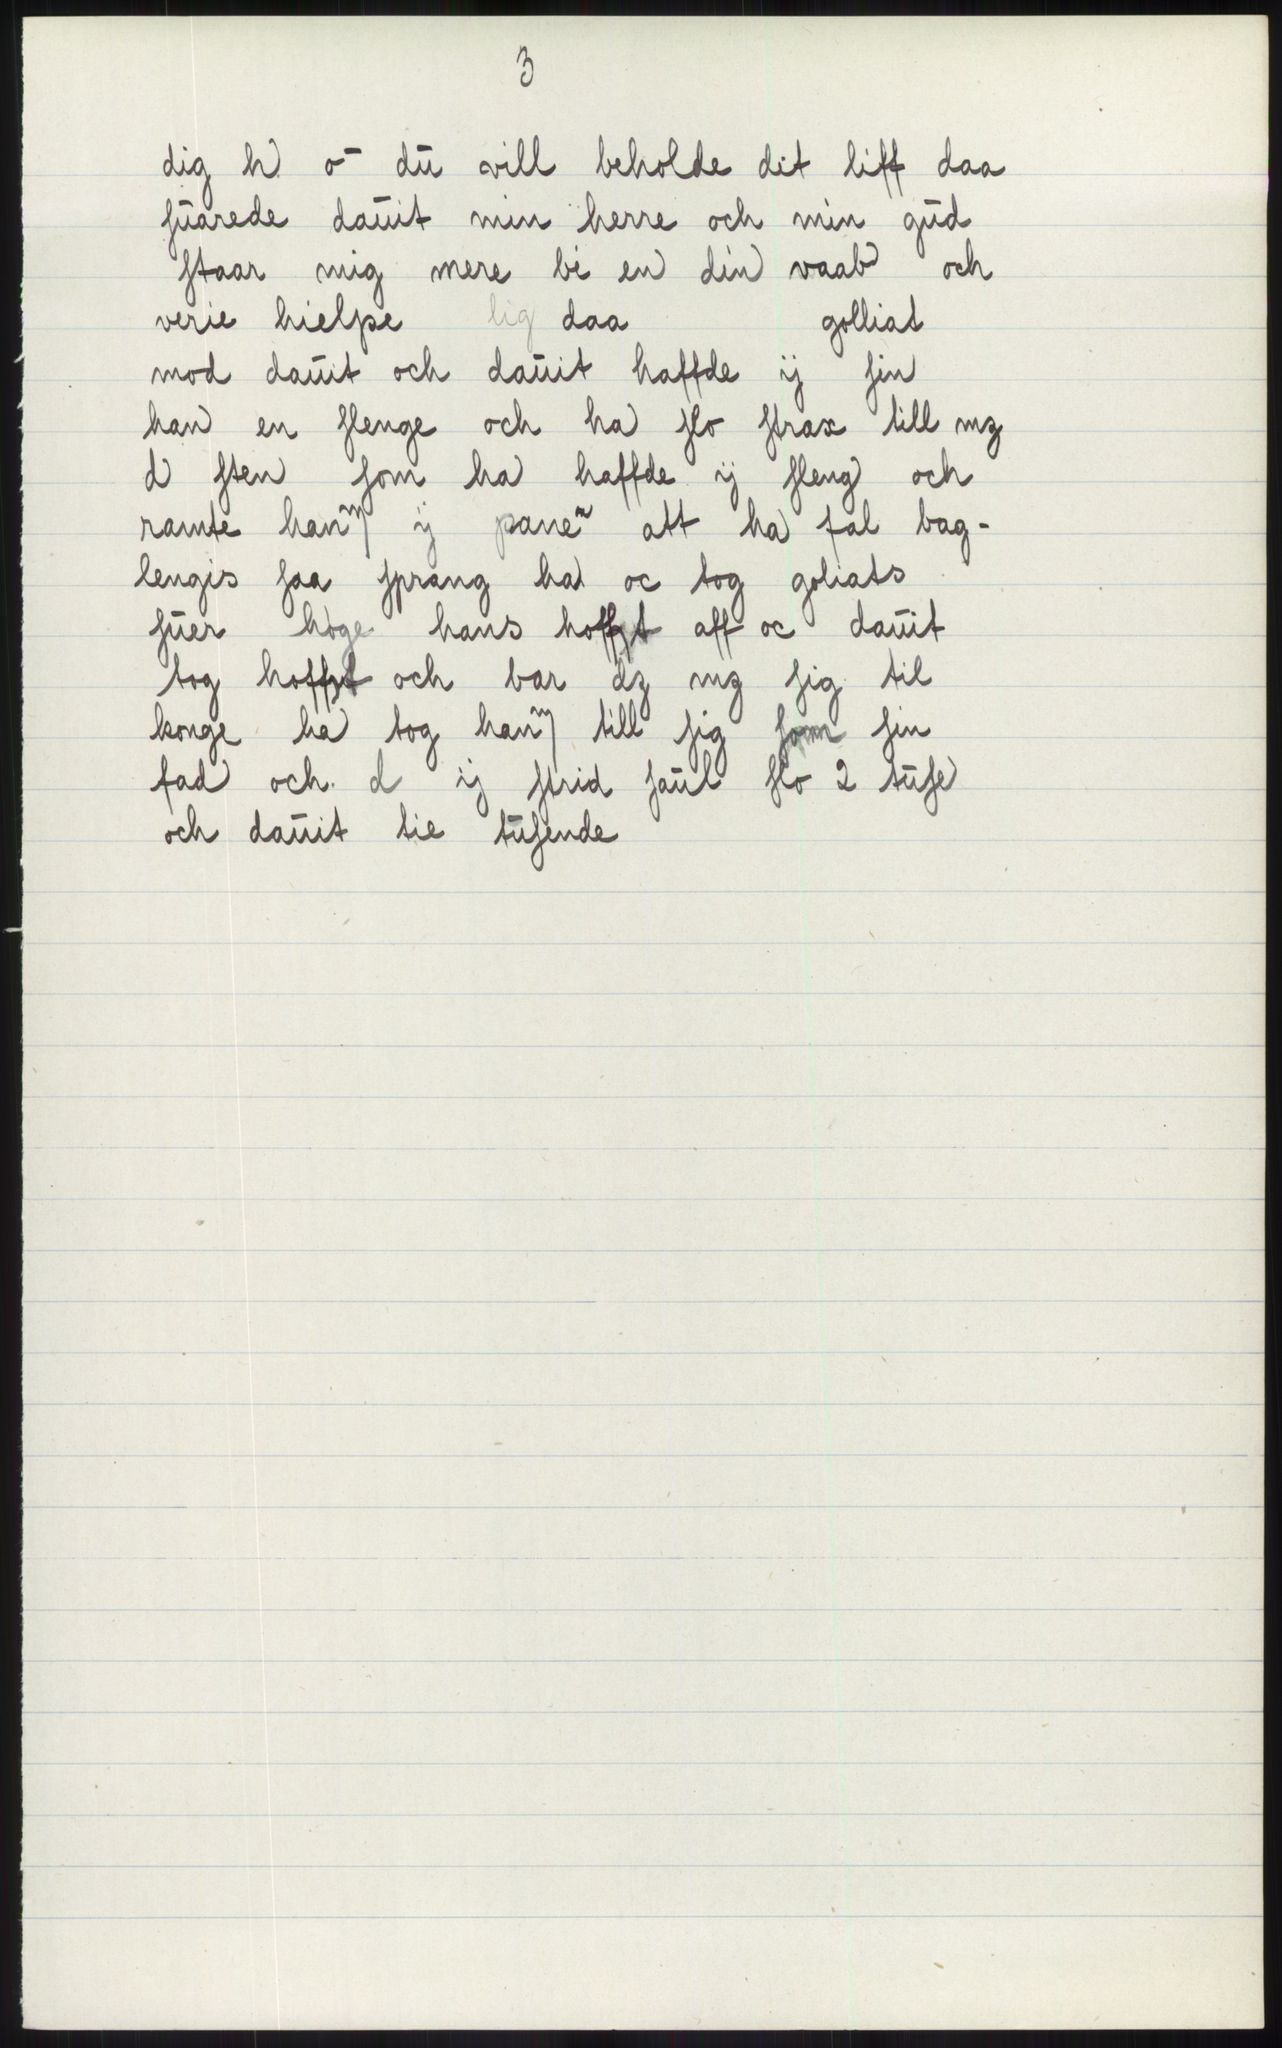 3
dig h o- dū vill beholde dit liff daa
ſūarede daūit min herre och min gūd
ſtaar mig mere bi en din vaab och
verie hielpe lig daa golliat
mod daūit och daūit haffde ij ſin
han en ſlenge och ha ſlo ſtrax till mz
d ſten ſom ha haffde ij ſleng och
ramte han ij pane att ha fal bag-
lengis ſaa ſprang ha oc tog goliats
ſūer hoge hans hoffᵉt aff oc daūit
tog hoffᵉt och bar dz mz ſig til
konge ha tog han till ſig ſom ſin
fad och d ij ſtrid ſaūl ſlo 2 tūſe
och daūit tie tūſende